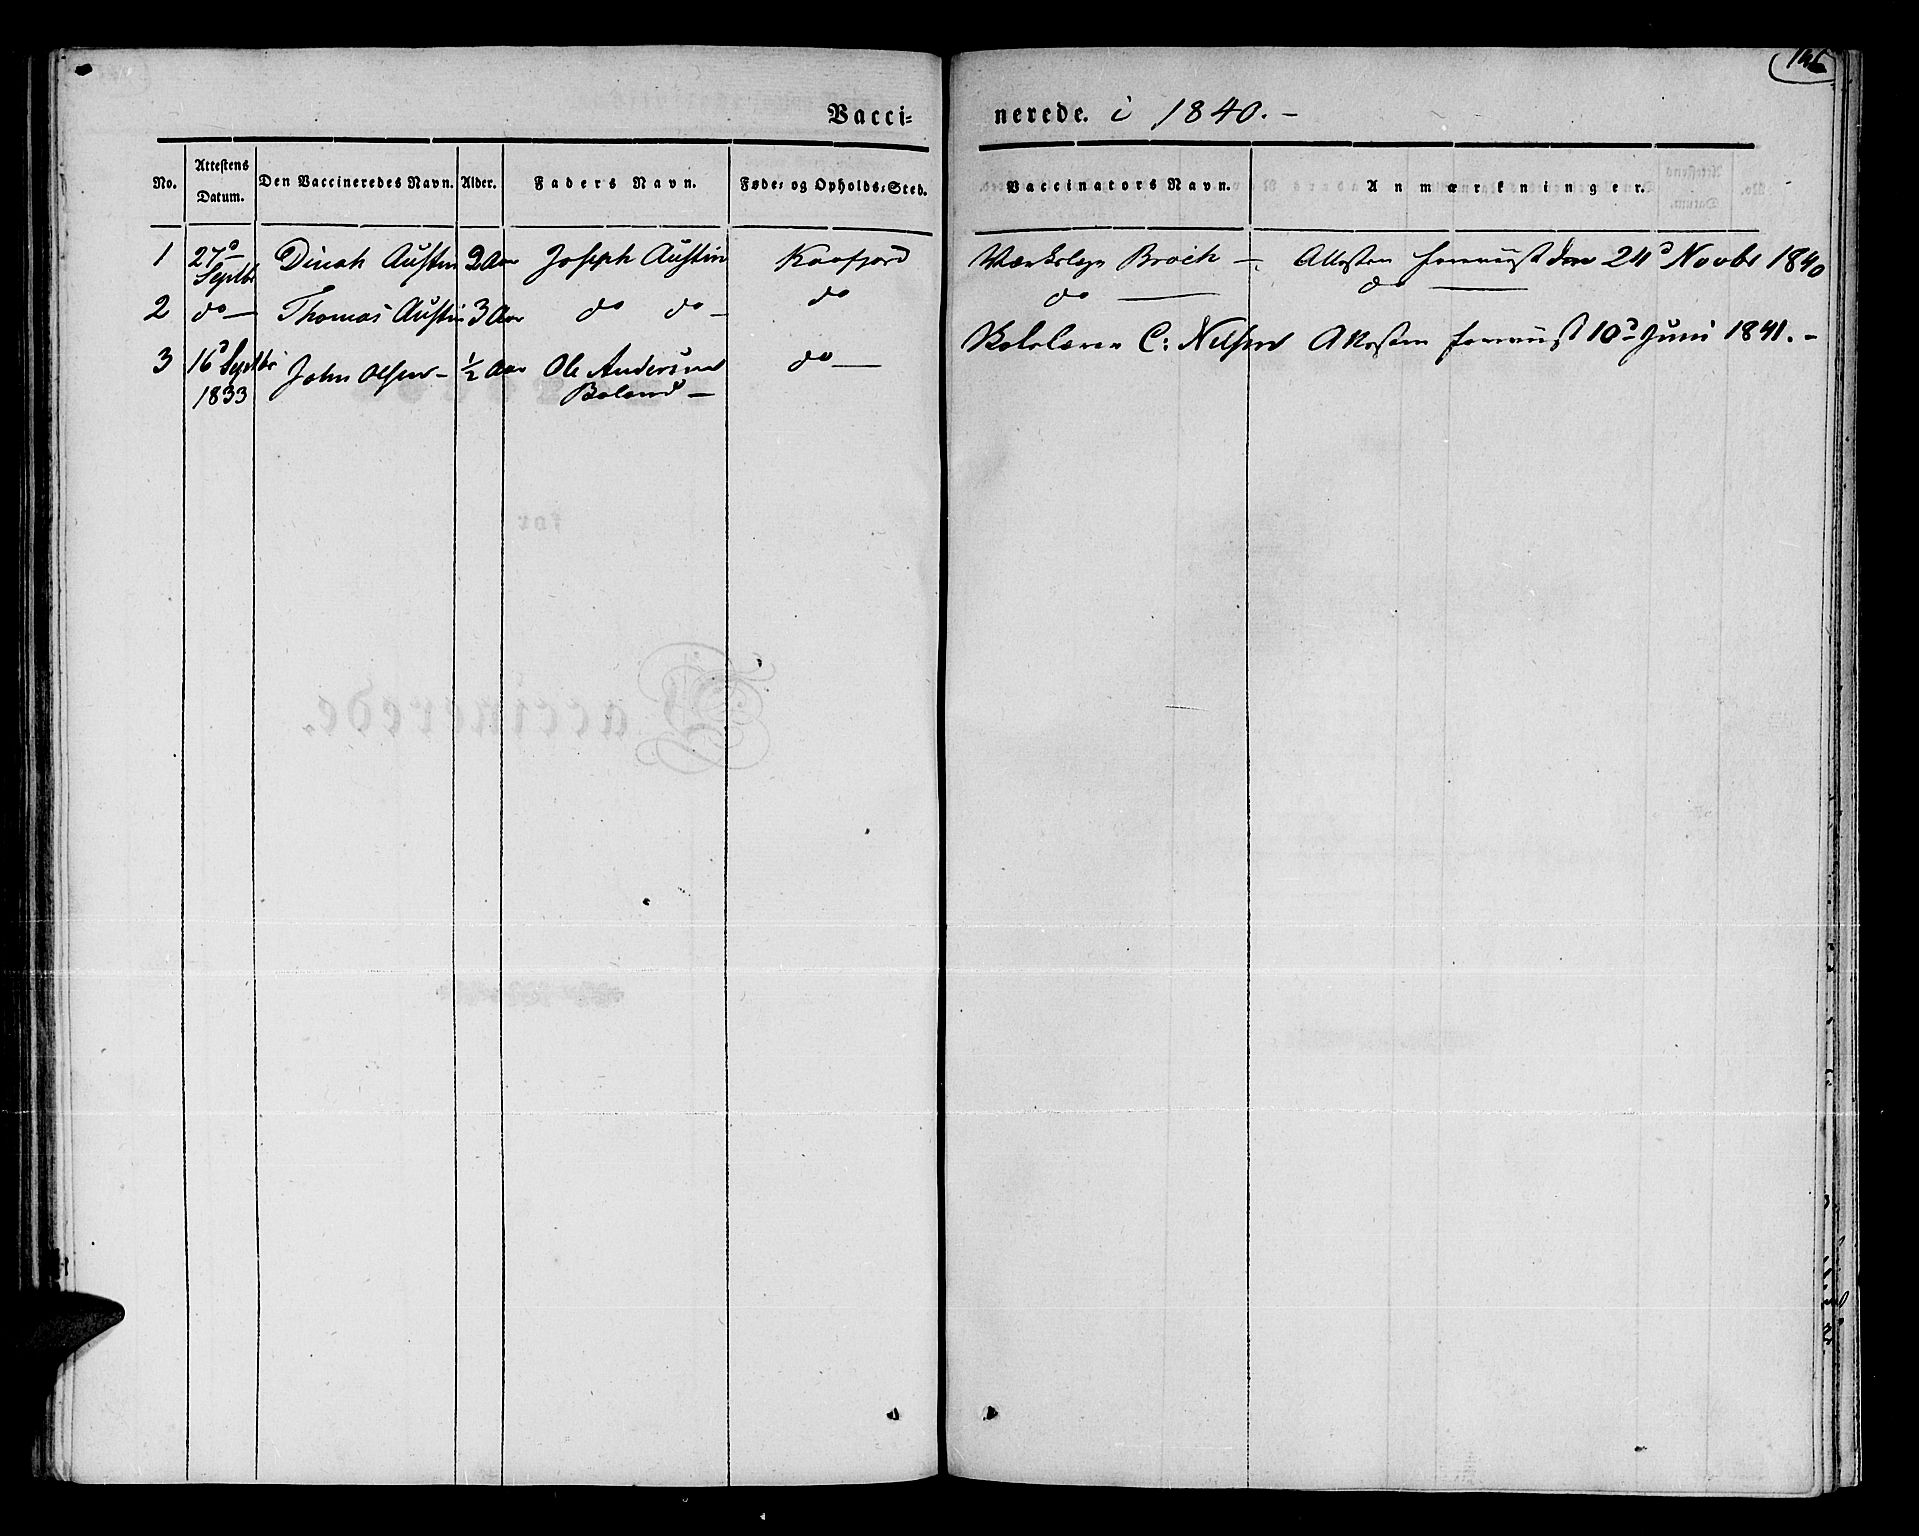 Vacci= nerede. i 1840. -
No.
Attestens Datum.
Den Vaccineredes Navn.
Alder.
Faders Navn.
Føde= og Opholds=Sted.
Vaccinators Navn.
Anmærkninger.
1 27de Septbr Dinah Austin 2 Aar Joseph Austin Kaafjord Værkslæge Broch - Attesten foreviist den 24de Novbr 1840
2 do - Thomas Austin 3 Aar do do - do do do
3 16d Septbr 1833 John Olsen - ½ Aar Ole Anderssen Boland - do Skolelærer C: Nilsen Attesten foreviist 10d Juni 1841. -